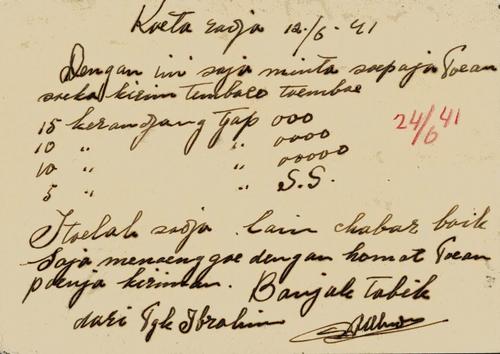 Koeta radja 12/6-41
Dengan ini saja minta soepaja Toean
soeka kirim tembaco toembac
15 kerandjang tjap 000
10 " " 0000
10 " " 00000
5 " " S.S.
24/6 41
Itoelah sadja. lain chabar baik
Saja menoenggoe dengan hormat Toean
poenja kiriman. Banjak tabik
dari Tgk Ibrahim